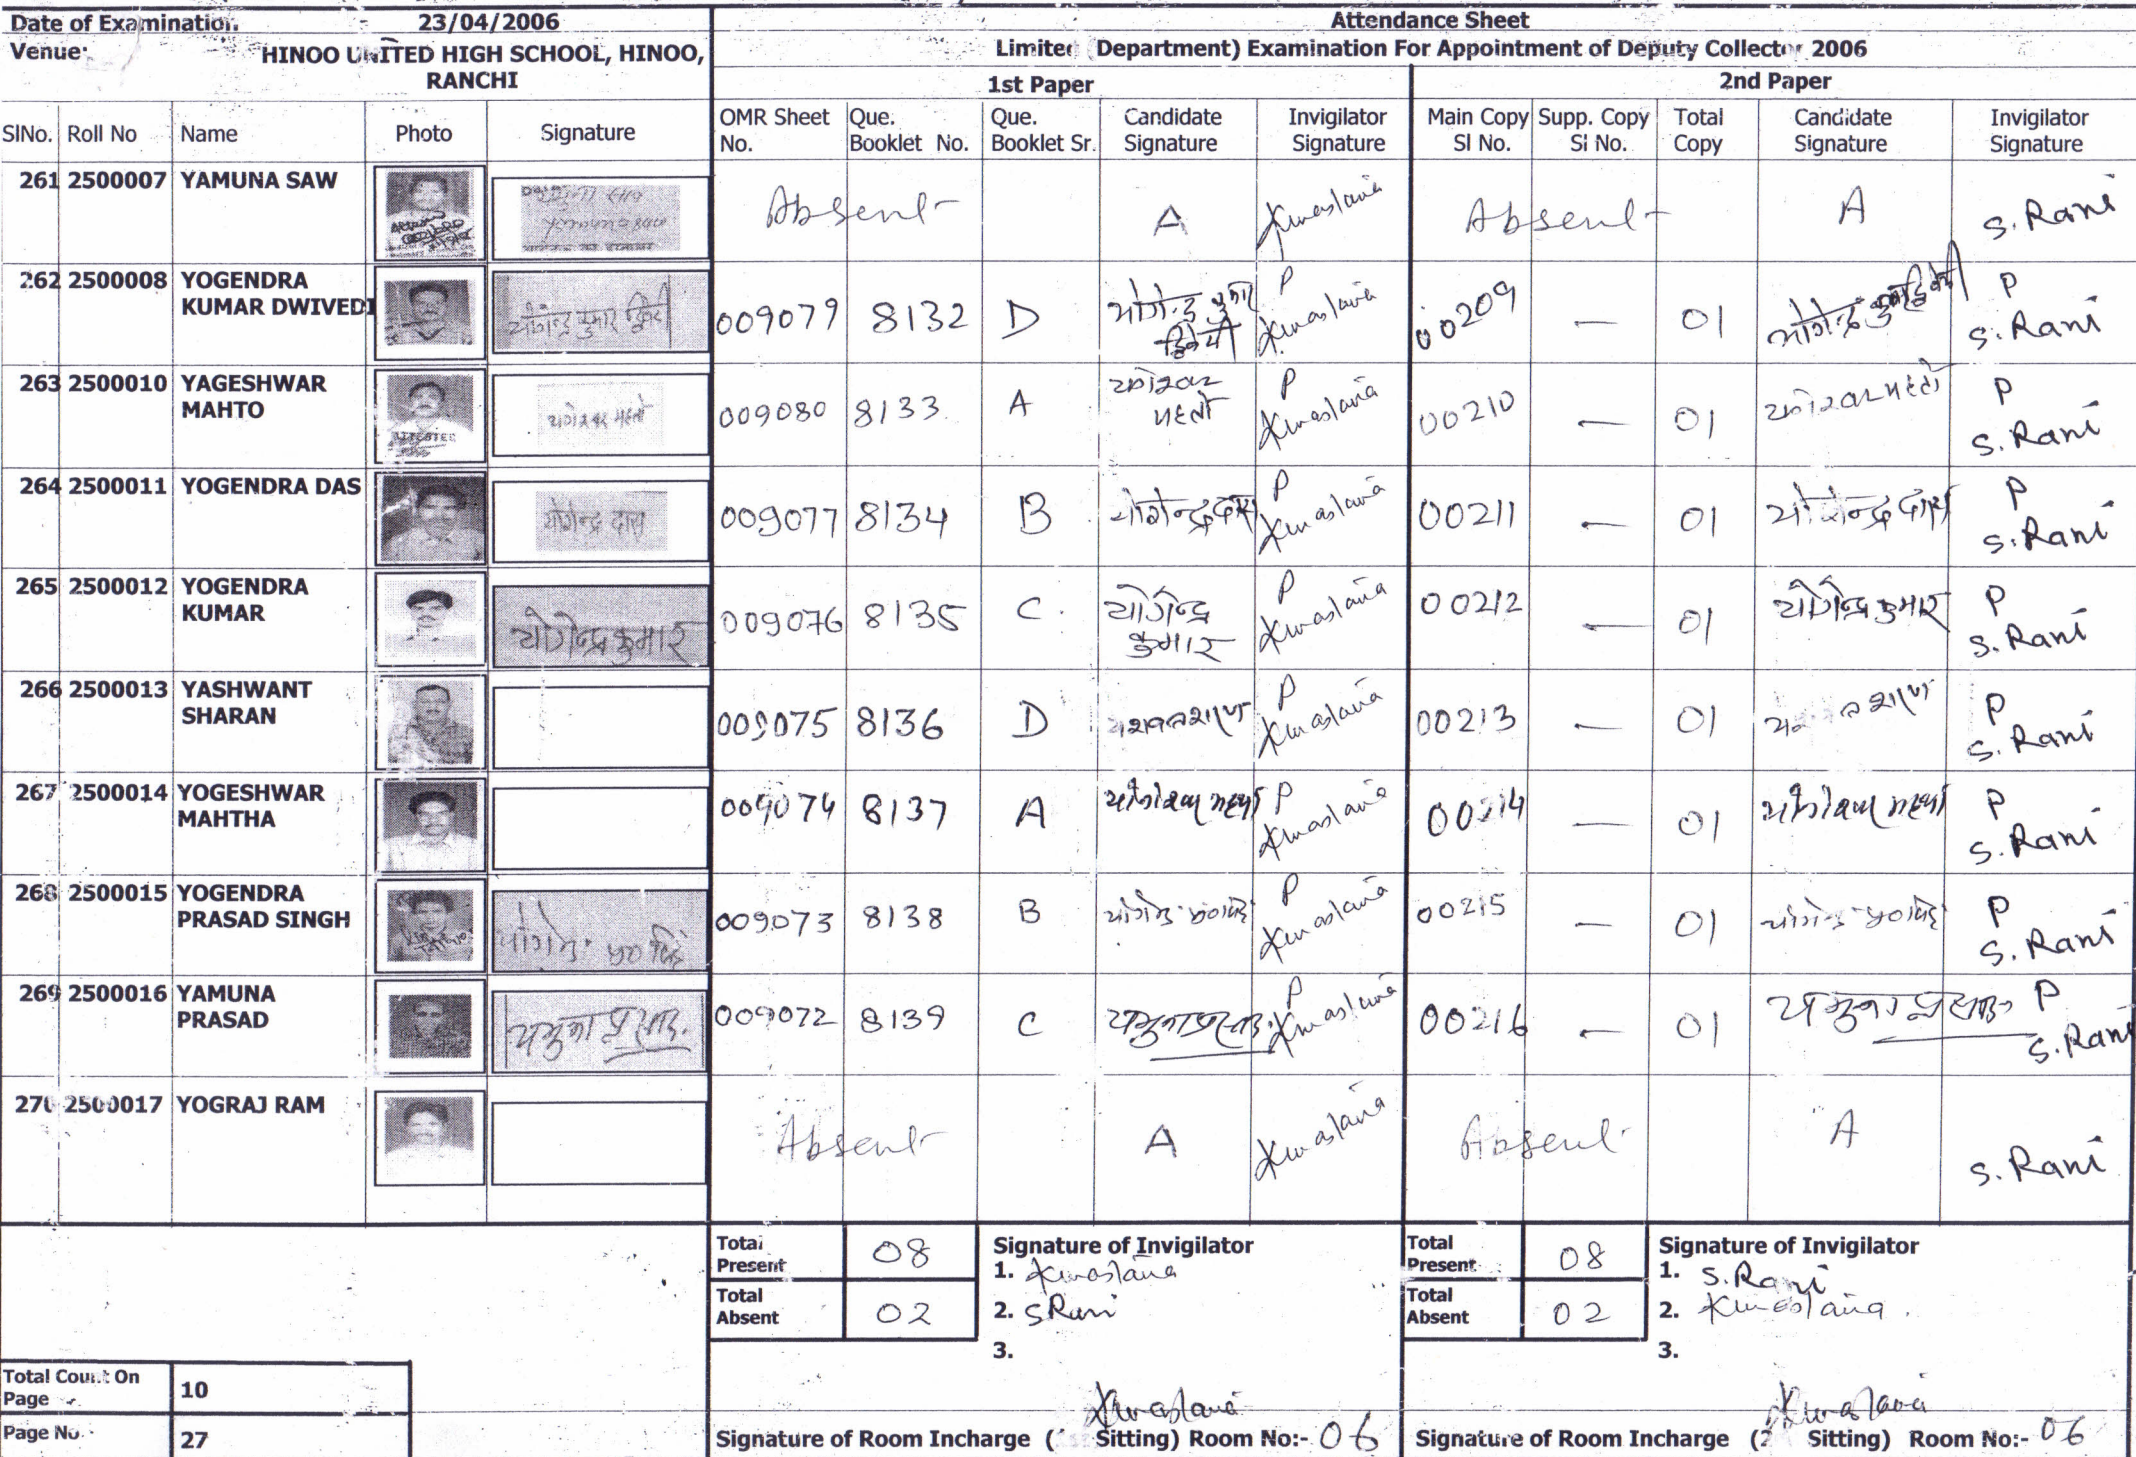 Date of Examination - 23/04/2006 Attendance Sheet
Venue: HINOO UNITED HIGH SCHOOL, HINOO, RANCHI
Limited (Department) Examination For Appointment of Deputy Collector 2006
1st Paper 2nd Paper
SlNo. Roll No Name Photo Signature OMR Sheet No. Que. Booklet No. Que. Booklet Sr. Candidate Signature Invigilator Signature Main Copy Sl No. Supp. Copy Sl No. Total Copy Candidate Signature Invigilator Signature
261 2500007 YAMUNA SAW Absent A Absent A S. Rani
262 2500008 YOGENDRA KUMAR DWIVEDI योगेन्द्र कुमार द्विवेदी 009079 8132 D योगेन्द्र कुमार द्विवेदी P 00209 — 01 योगेन्द्र कुमार द्विवेदी P S. Rani
263 2500010 YAGESHWAR MAHTO यगेश्वर महतो 009080 8133 A यगेश्वर महतो P 00210 — 01 यगेश्वर महतो P S. Rani
264 2500011 YOGENDRA DAS योगेन्द्र दास 009077 8134 B योगेन्द्र दास P 00211 — 01 योगेन्द्र दास P S. Rani
265 2500012 YOGENDRA KUMAR योगेन्द्र कुमार 009076 8135 C योगेन्द्र कुमार P 00212 — 01 योगेन्द्र कुमार P S. Rani
266 2500013 YASHWANT SHARAN 009075 8136 D यशवन्त शरण P 00213 — 01 P S. Rani
267 2500014 YOGESHWAR MAHTHA 009074 8137 A योगेश्वर महथा P 00214 — 01 योगेश्वर महथा P S. Rani
268 2500015 YOGENDRA PRASAD SINGH 009073 8138 B योगेन्द्र प्र० सिंह P 00215 — 01 योगेन्द्र प्र० सिंह P S. Rani
269 2500016 YAMUNA PRASAD यमुना प्रसाद 009072 8139 C यमुना प्रसाद P 00216 — 01 यमुना प्रसाद P S. Rani
270 2500017 YOGRAJ RAM Absent A Absent A S. Rani
Total Present 08 Signature of Invigilator Total Present 08 Signature of Invigilator
1. 1. S. Rani
Total Absent 02 2. S Rani Total Absent 02 2.
3. 3.
Total Count On Page 10
Page No. 27 Signature of Room Incharge ( Sitting) Room No:- 06 Signature of Room Incharge (2 Sitting) Room No:- 06